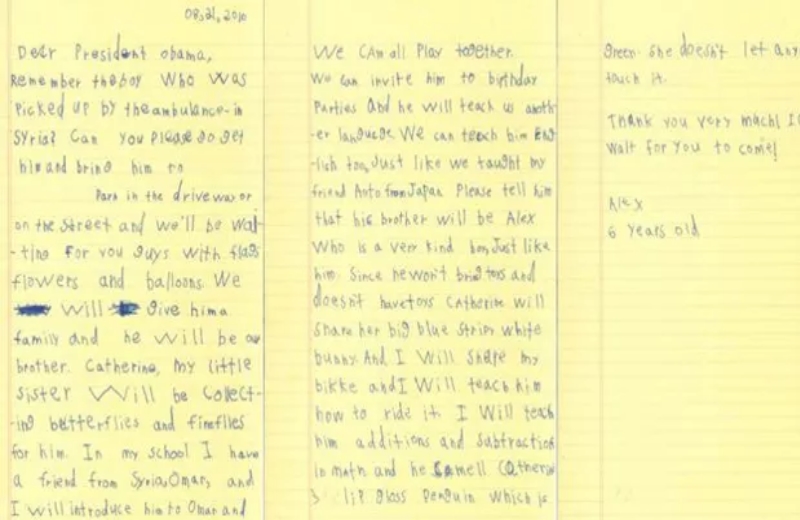 08,21,2016
Dear President obama,
Remember theboy Who was
Picked up by the ambulance in
Syria? Can you please go get
him and bring him to
Park in the driveway or
on the Street and we'll be wai-
-ting for you guys with flags
flowers and balloons. We
will give him a
family and he will be our
brother. Catherine, my little
sister Will be collect-
-ing butterflies and fireflies
for him. In my school I have
a friend from Syria, Omar, and
I will introduce him to Omar and
We Can all Play together.
We can invite him to birthday
Parties And he will teach us anoth
-er language. We can teach him Eng
-lish too, Just like we taught my
friend Aoto from Japan. Please tell him
that his brother will be Alex
Who is a very kind boy, Just like
him. Since he won't bring toys and
doesn't have toys Catherine will
share her big blue stripy white
bunny. And I Will share my
bikke and I Will teach him
how to ride it. I Will teach
him additions and subtraction
in math and he smell Catherine
glass Penguin which is
green. She doesn't let any
touch it.
Thank you very much! I
wait for you to come!
Alex
6 years old